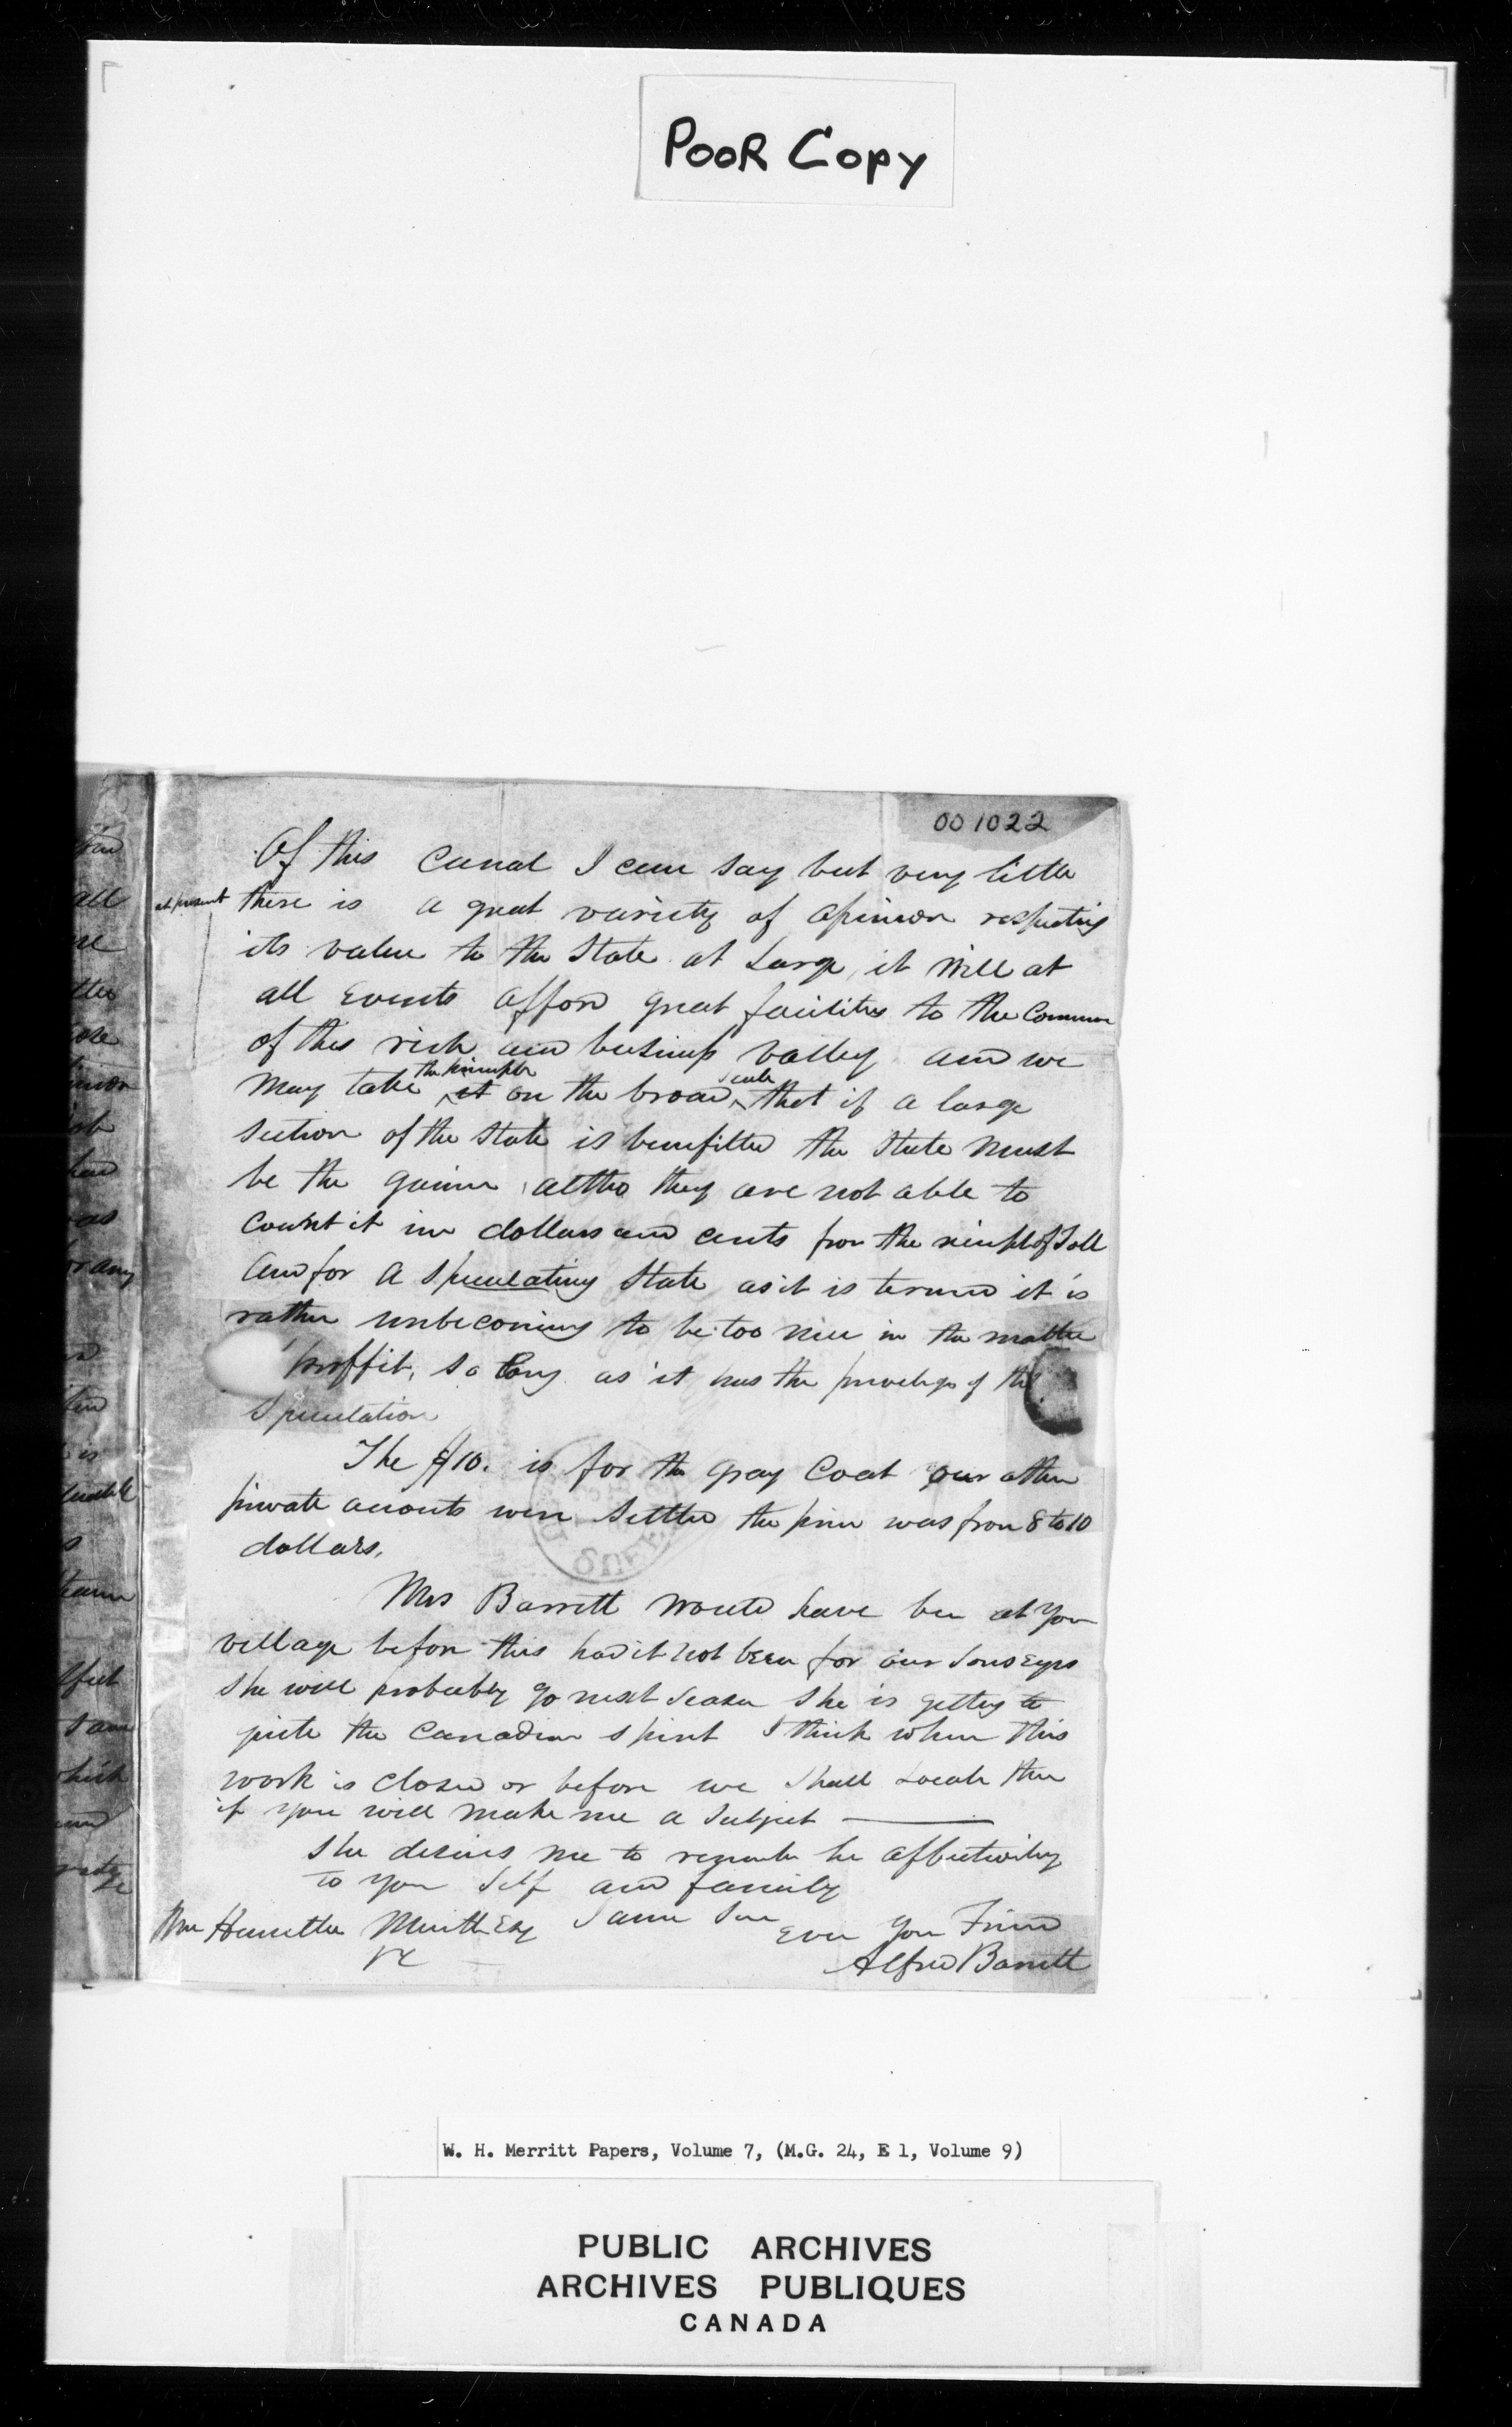 Poor Copy
001022
Of this Canal I can say but very little
at present there is a great variety of opinion respecting
its value to the State at Large, it will at
all Events afford great facilities to the Commerce
of this rich and business valley and we
may take the principle it on the broad scale that if a large
section of the State is benefitted the State must
be the gainer altho they are not able to
Count it in dollars and cents from the receipt of Toll
And for A Speculating State as it is termed it is
rather unbecoming to be too nice in the matter
proffit, so long as it has the priveledge of the
Speculation
The $10. is for the gray Coat our other
private acounts were Settled the price was from 8 to 10
dollars,
Mrs Barrett would have been at your
village before this had it not been for our sons Eyes
She will probably go next Season She is getting to
quite the Canadian spirit I think when this
work is closed or before we Shall Locate there
if you will make me a Subject
She desires me to remember her affectionately
To your Self and family
Wm Hamilton Merritt Esq I am Sir Ever your Friend
Alfred Barrett
W. H. Merritt Papers, Volume 7, (M.G. 24, E 1, Volume 9)
PUBLIC ARCHIVES
ARCHIVES PUBLIQUES
CANADA